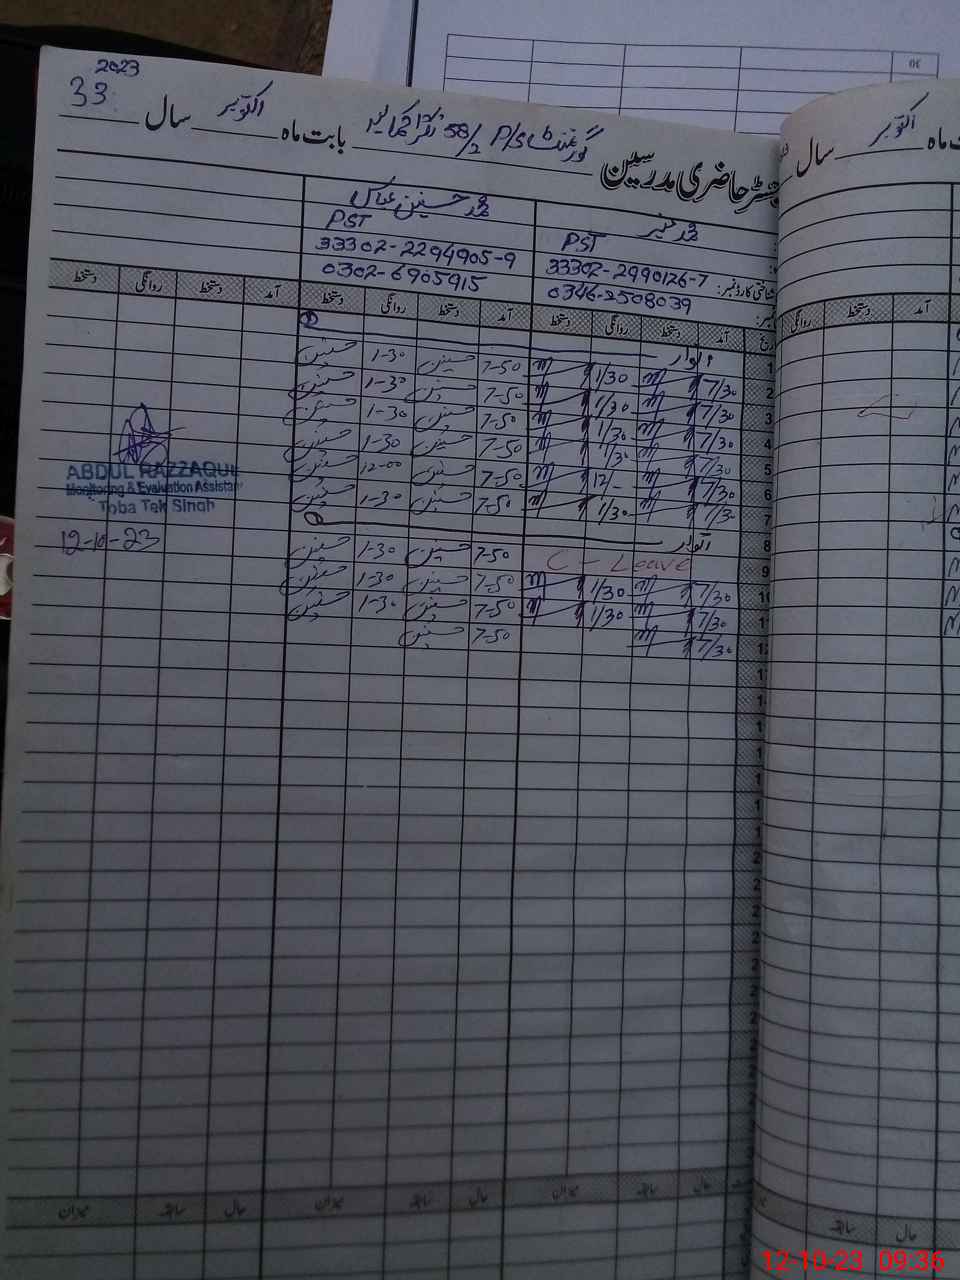 2023
33
رجسٹر حاضری مدرسین گورنمنٹ P/S 58/2 بابت ماہ اکتوبر سال
محمد منیر
PST
شناختی کارڈ نمبر: 33302-2990126-7
0346-2508039
محمد حسنین عباس
PST
33302-2294905-9
0302-6905915
آمد دستخط روانگی دستخط آمد دستخط روانگی دستخط آمد دستخط روانگی دستخط
1 اتوار
2 7/30 1/30 7-50 حسنین 1-30 حسنین
3 7/30 1/30 7-50 حسنین 1-30 حسنین
4 7/30 1/30 7-50 حسنین 1-30 حسنین
5 7/30 1/30 7-50 حسنین 1-30 حسنین
6 7/30 12/- 7-50 حسنین 12-00 حسنین
7 7/30 1/30 7-50 حسنین 1-30 حسنین
8 اتوار
9 C - Leave 7-50 حسنین 1-30 حسنین
10 7/30 1/30 7-50 حسنین 1-30 حسنین
11 7/30 1/30 7-50 حسنین 1-30 حسنین
12 7/30 7-50 حسنین
ABDUL RAZZAQUE
Monitoring & Evaluation Assistant
Toba Tek Singh
12-10-23
حال سابقہ میزان حال سابقہ میزان حال سابقہ میزان
ماہ اکتوبر سال
آمد دستخط روانگی
حال سابقہ
12-10-23 09:36